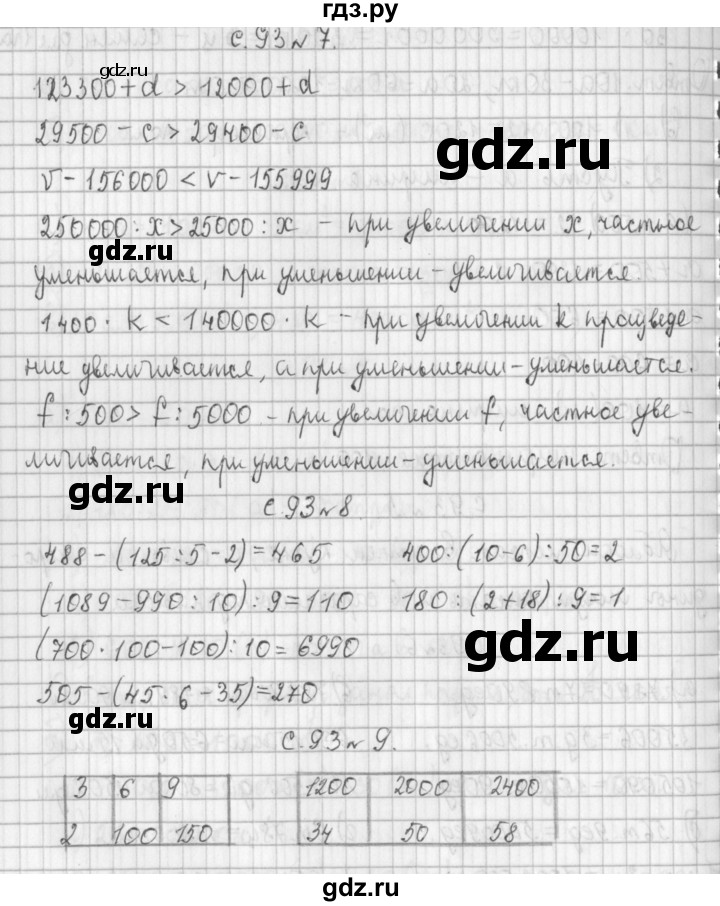 гдз.ру
с.93 №7.
gdz.ru
123300+d > 12000+d
29500 – c > 29400 – c
gdz.ru
v – 156000 < v – 155999
250000 : x > 25000 : x – при увеличении x, частное
gdz.ru
уменьшается, при уменьшении – увеличивается.
1400 · k < 140000 · k – при увеличении k произведе-
ние увеличивается, а при уменьшении – уменьшается.
f : 500 > f : 5000 – при увеличении f, частное уве-
личивается, при уменьшении – уменьшается.
gdz.ru
с.93 №8.
488 – (125 : 5 – 2) = 465 400 : (10 – 6) : 50 = 2
(1089 – 990 : 10) : 9 = 110 180 : (2 + 18) : 9 = 1
gdz.ru
(700 · 100 – 100) : 10 = 6990
505 – (45 · 6 – 35) = 270
gdz.ru
с.93 №9.
3 6 9 1200 2000 2400
2 100 150 34 50 58
gdz.ru